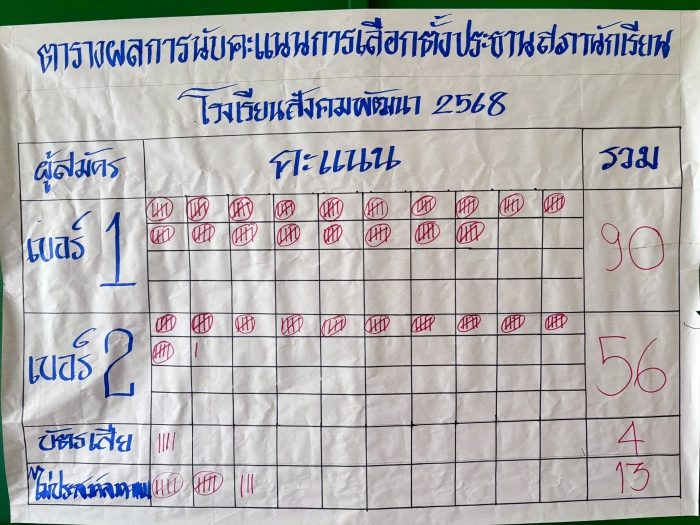 ตารางผลการนับคะแนนการเลือกตั้งประธานสภานักเรียน
โรงเรียนสังคมพัฒนา 2568
ผู้สมัคร คะแนน รวม
เบอร์ 1 90
เบอร์ 2 56
บัตรเสีย 4
ไม่ประสงค์ลงคะแนน 13